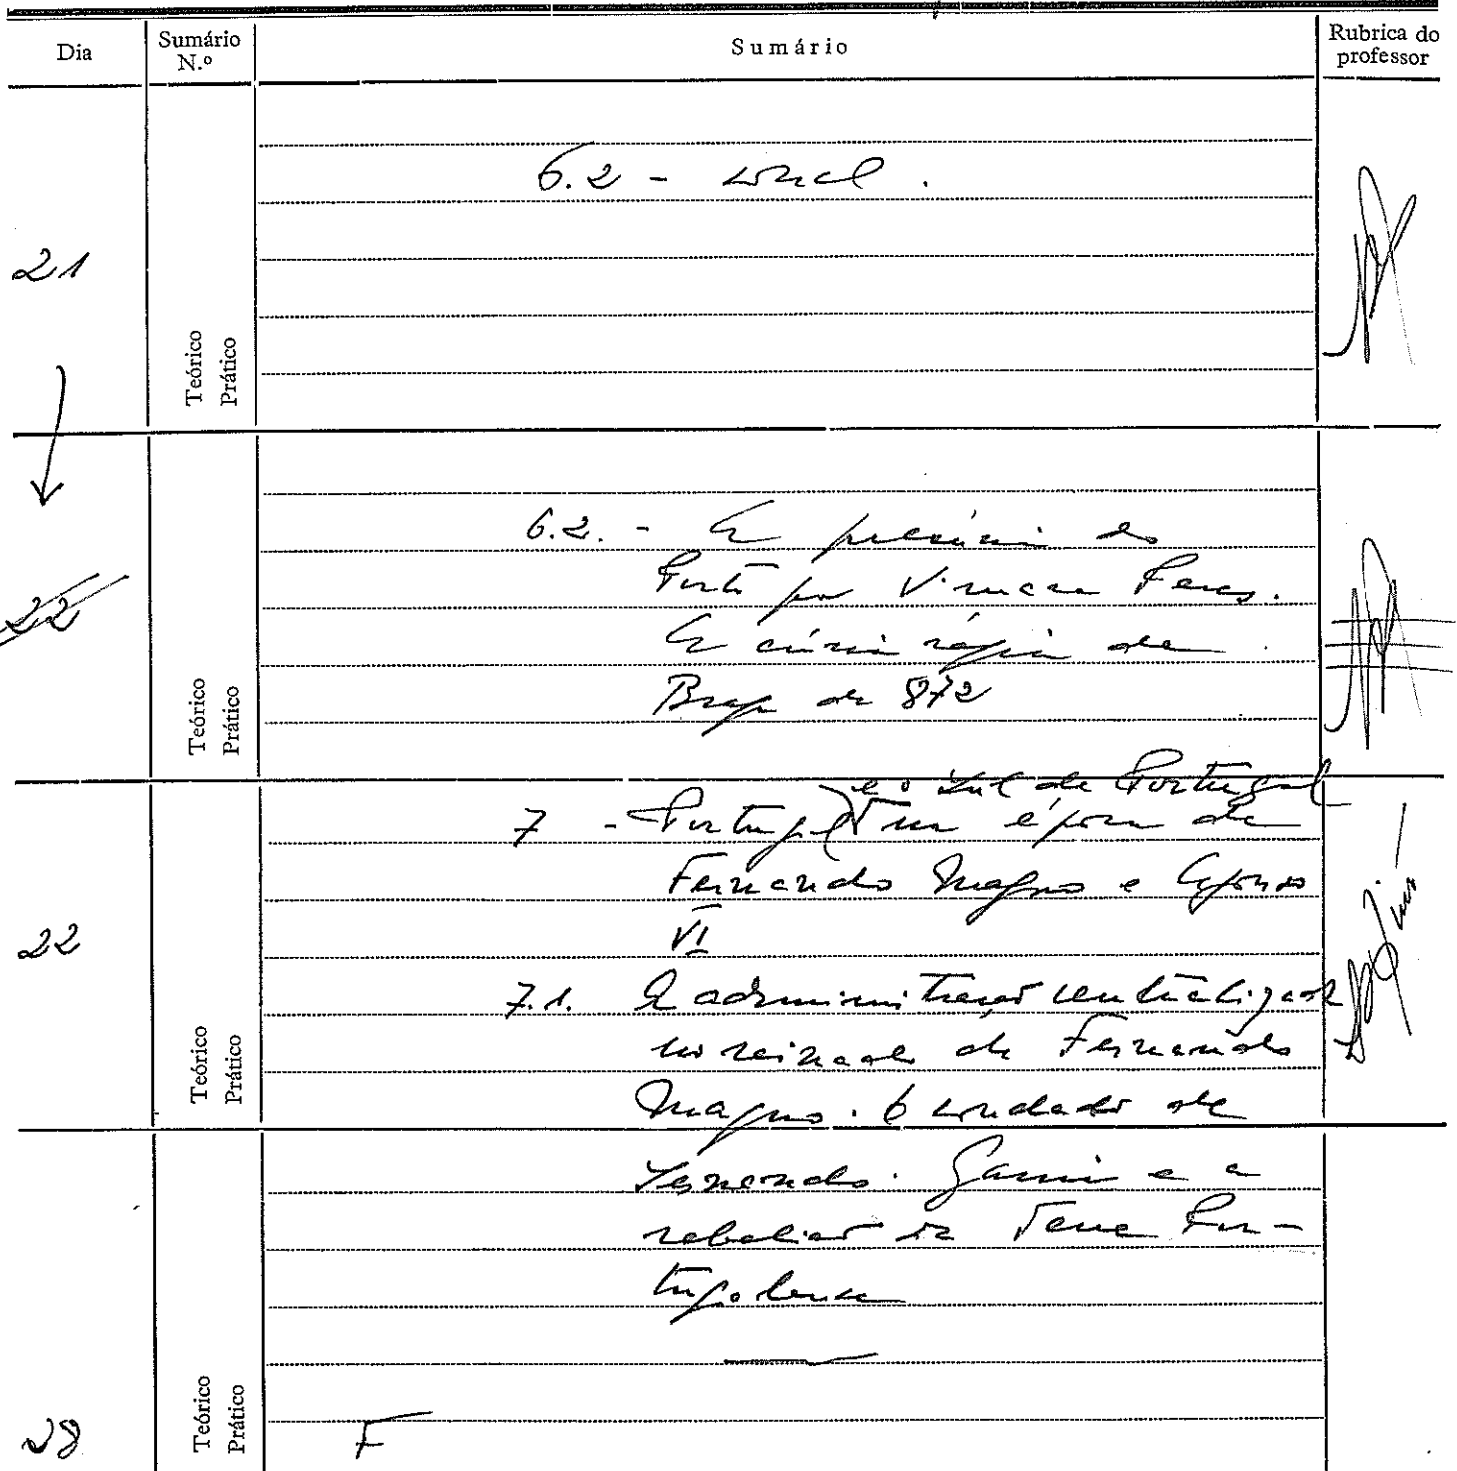 Dia
Sumário
N.º
Sumário
Rubrica do
professor
21
Teórico
Prático
6.2 -
22
Teórico
Prático
6.2. - A presúria do
Porto por Vimara Peres.
A cúria régia de
Braga de 872
22
Teórico
Prático
e o Sul de Portugal
7 - Portugal na época de
Fernando Magno e Afonso
VI
7.1. A administração centralizada
no reinado de Fernando
Magno. O condado de
Sesnando. Garcia e a
rebelião da Terra Por-
tugalense
28
Teórico
Prático
F